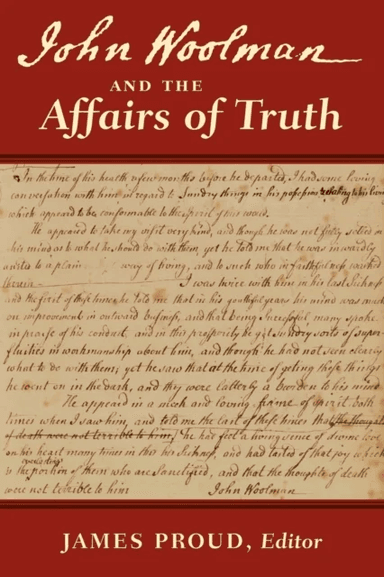 John Woolman
AND THE
Affairs of Truth
In the time of his health a few months before he departed, I had some loving
conversation with him in regard to Sundry things in his possession relating to his living
which appeard to be conformable to the Spirit of this world.
He appeared to take my visit very kind, and though he was not fully settled in
his mind as to what he should do with them, yet he told me that he was inwardly
united to a plain way of living, and to such who in faithfulness walked
therein I was twice with him in his last sickness
and the first of those times he told me that in his youthful years his mind was much
on improvement in outward business, and that being successful many spoke
in praise of his conduct, and in this prosperity he got sundry sorts of super
fluities in workmanship about him, and though he had not seen clearly
what to do with them; yet he saw that at the time of getting these things
he went on in the dark, and they were latterly a burden to his mind
He appeard in a meek and loving frame of spirit both
times when I saw him, and told me the last of those times that the thoughts
of death were not terrible to him, he had felt a living sense of divine love
on his heart many times in this his sickness, and had tasted of that joy which
is the everlasting portion of them who are sanctified, and that the thoughts of death
were not terrible to him John Woolman
JAMES PROUD, Editor